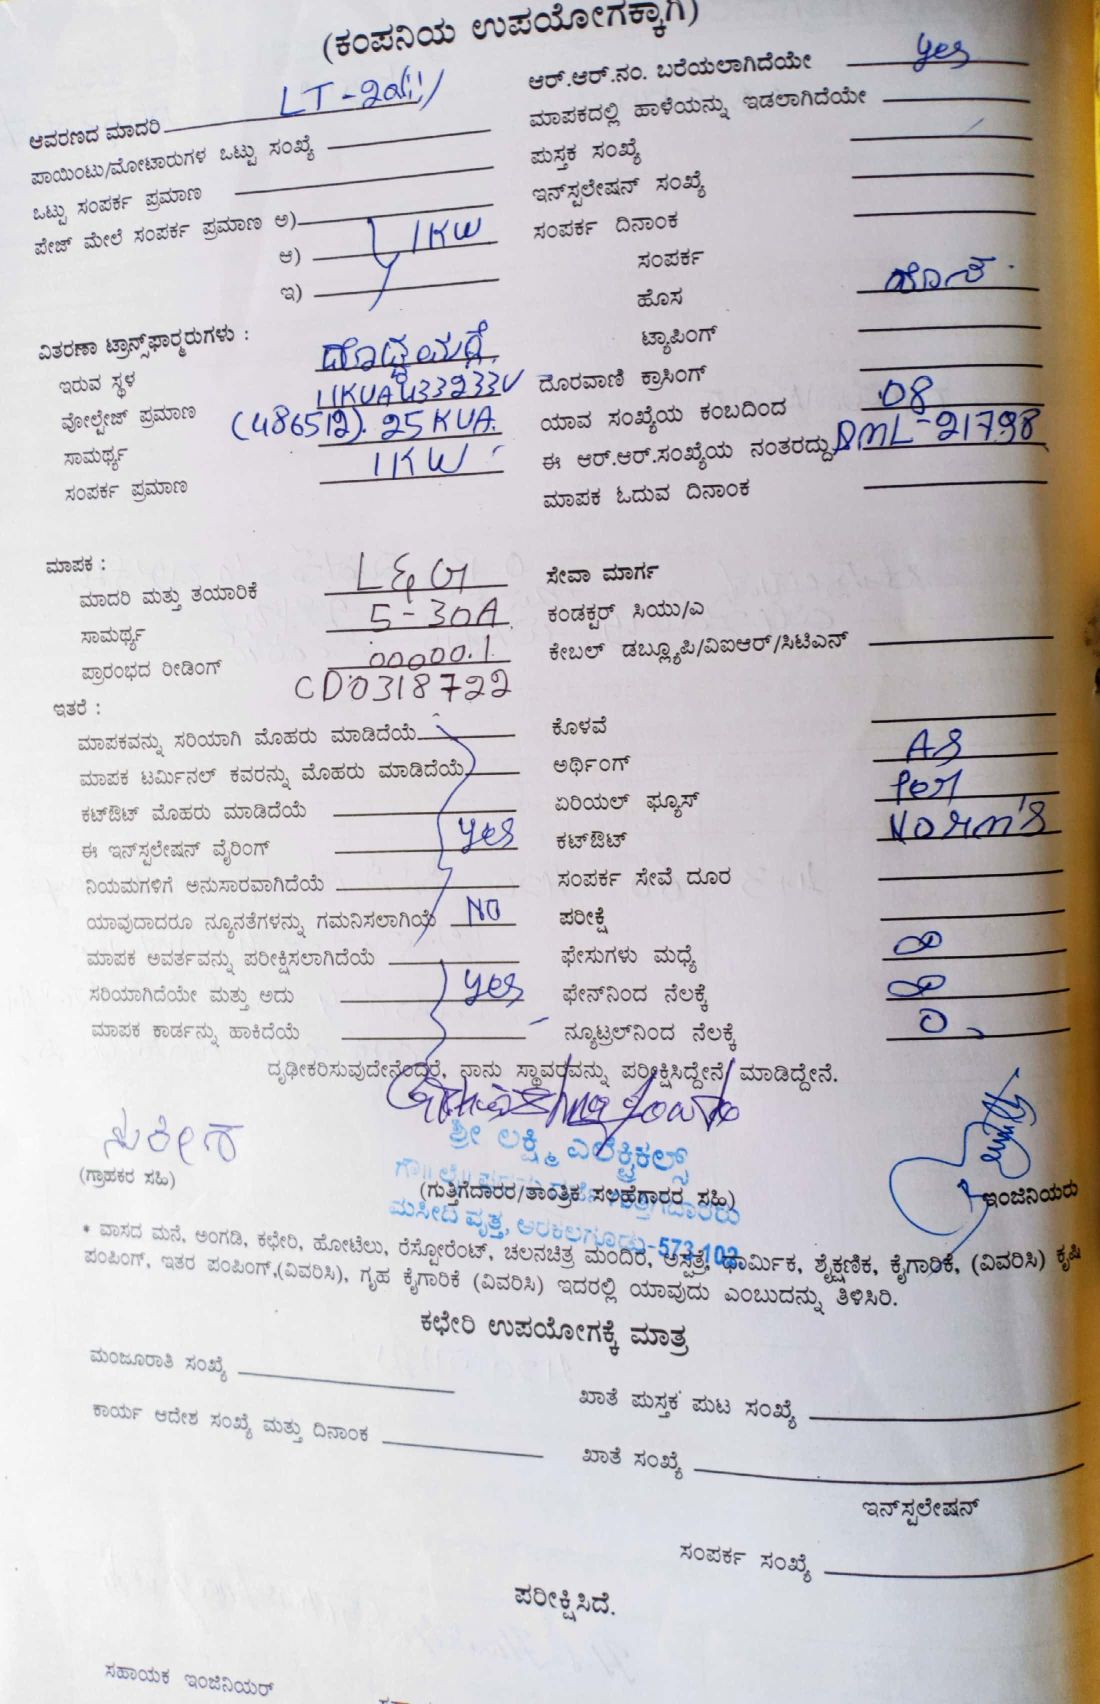 (ಕಂಪನಿಯ ಉಪಯೋಗಕ್ಕಾಗಿ)
ಆವರಣದ ಮಾದರಿ LT-2a(ii)
ಪಾಯಿಂಟು/ಮೋಟಾರುಗಳ ಒಟ್ಟು ಸಂಖ್ಯೆ
ಒಟ್ಟು ಸಂಪರ್ಕ ಪ್ರಮಾಣ
ಪೇಜ್ ಮೇಲೆ ಸಂಪರ್ಕ ಪ್ರಮಾಣ ಅ)
ಆ) 1KW
ಇ)
ವಿತರಣಾ ಟ್ರಾನ್ಸ್‌ಫಾರ್‍ಮರುಗಳು :
ಇರುವ ಸ್ಥಳ ದೊಡ್ಡಮಗ್ಗೆ
ವೋಲ್ಟೇಜ್ ಪ್ರಮಾಣ 11KVA 433233V
ಸಾಮರ್ಥ್ಯ (486512). 25KVA.
ಸಂಪರ್ಕ ಪ್ರಮಾಣ 1KW
ಮಾಪಕ :
ಮಾದರಿ ಮತ್ತು ತಯಾರಿಕೆ L&G
ಸಾಮರ್ಥ್ಯ 5-30A
ಪ್ರಾರಂಭದ ರೀಡಿಂಗ್ 00000.1
CD0318722
ಇತರೆ :
ಮಾಪಕವನ್ನು ಸರಿಯಾಗಿ ಮೊಹರು ಮಾಡಿದೆಯೆ
ಮಾಪಕ ಟರ್ಮಿನಲ್ ಕವರನ್ನು ಮೊಹರು ಮಾಡಿದೆಯೆ
ಕಟ್‌ಔಟ್ ಮೊಹರು ಮಾಡಿದೆಯೆ
ಈ ಇನ್‌ಸ್ಟಲೇಷನ್ ವೈರಿಂಗ್ yes
ನಿಯಮಗಳಿಗೆ ಅನುಸಾರವಾಗಿದೆಯೆ
ಯಾವುದಾದರೂ ನ್ಯೂನತೆಗಳನ್ನು ಗಮನಿಸಲಾಗಿಯೆ NO
ಮಾಪಕ ಅವರ್ತವನ್ನು ಪರೀಕ್ಷಿಸಲಾಗಿದೆಯೆ
ಸರಿಯಾಗಿದೆಯೇ ಮತ್ತು ಅದು yes
ಮಾಪಕ ಕಾರ್ಡನ್ನು ಹಾಕಿದೆಯೆ
ಆರ್.ಆರ್.ನಂ. ಬರೆಯಲಾಗಿದೆಯೇ yes
ಮಾಪಕದಲ್ಲಿ ಹಾಳೆಯನ್ನು ಇಡಲಾಗಿದೆಯೇ
ಪುಸ್ತಕ ಸಂಖ್ಯೆ
ಇನ್‌ಸ್ಟಲೇಷನ್ ಸಂಖ್ಯೆ
ಸಂಪರ್ಕ ದಿನಾಂಕ
ಸಂಪರ್ಕ
ಹೊಸ ಹೊಸ
ಟ್ಯಾಪಿಂಗ್
ದೊರವಾಣಿ ಕ್ರಾಸಿಂಗ್
ಯಾವ ಸಂಖ್ಯೆಯ ಕಂಬದಿಂದ 08
ಈ ಆರ್.ಆರ್.ಸಂಖ್ಯೆಯ ನಂತರದ್ದು DML-21798
ಮಾಪಕ ಓದುವ ದಿನಾಂಕ
ಸೇವಾ ಮಾರ್ಗ
ಕಂಡಕ್ಟರ್ ಸಿಯು/ಎ
ಕೇಬಲ್ ಡಬ್ಲ್ಯೂಪಿ/ವಿಐಆರ್/ಸಿಟಿಎನ್
ಕೊಳವೆ
ಅರ್ಥಿಂಗ್ AS
ಏರಿಯಲ್ ಫ್ಯೂಸ್ per
ಕಟ್‌ಔಟ್ Norm's
ಸಂಪರ್ಕ ಸೇವೆ ದೂರ
ಪರೀಕ್ಷೆ
ಫೇಸುಗಳು ಮಧ್ಯೆ ∞
ಫೇಸ್‌ನಿಂದ ನೆಲಕ್ಕೆ ∞
ನ್ಯೂಟ್ರಲ್‌ನಿಂದ ನೆಲಕ್ಕೆ 0
ದೃಢೀಕರಿಸುವುದೇನೆಂದರೆ, ನಾನು ಸ್ಥಾವರವನ್ನು ಪರೀಕ್ಷಿಸಿದ್ದೇನೆ/ಮಾಡಿದ್ದೇನೆ.
ಸುರೇಶ
(ಗ್ರಾಹಕರ ಸಹಿ)
ಶ್ರೀ ಲಕ್ಷ್ಮಿ ಎಲೆಕ್ಟ್ರಿಕಲ್ಸ್
(ಗುತ್ತಿಗೆದಾರರ/ತಾಂತ್ರಿಕ ಸಲಹೆಗಾರರ ಸಹಿ)
ಮಸೀದಿ ವೃತ್ತ, ಅರಕಲಗೂಡು-573 102
ಇಂಜಿನಿಯರು
* ವಾಸದ ಮನೆ, ಅಂಗಡಿ, ಕಛೇರಿ, ಹೋಟೆಲು, ರೆಸ್ಟೋರೆಂಟ್, ಚಲನಚಿತ್ರ ಮಂದಿರ, ಆಸ್ಪತ್ರೆ, ಧಾರ್ಮಿಕ, ಶೈಕ್ಷಣಿಕ, ಕೈಗಾರಿಕೆ, (ವಿವರಿಸಿ) ಕೃಷಿ
ಪಂಪಿಂಗ್, ಇತರ ಪಂಪಿಂಗ್,(ವಿವರಿಸಿ), ಗೃಹ ಕೈಗಾರಿಕೆ (ವಿವರಿಸಿ) ಇದರಲ್ಲಿ ಯಾವುದು ಎಂಬುದನ್ನು ತಿಳಿಸಿರಿ.
ಕಛೇರಿ ಉಪಯೋಗಕ್ಕೆ ಮಾತ್ರ
ಮಂಜೂರಾತಿ ಸಂಖ್ಯೆ
ಖಾತೆ ಪುಸ್ತಕ ಪುಟ ಸಂಖ್ಯೆ
ಕಾರ್ಯ ಆದೇಶ ಸಂಖ್ಯೆ ಮತ್ತು ದಿನಾಂಕ
ಖಾತೆ ಸಂಖ್ಯೆ
ಇನ್‌ಸ್ಟಲೇಷನ್
ಸಂಪರ್ಕ ಸಂಖ್ಯೆ
ಪರೀಕ್ಷಿಸಿದೆ.
ಸಹಾಯಕ ಇಂಜಿನಿಯರ್